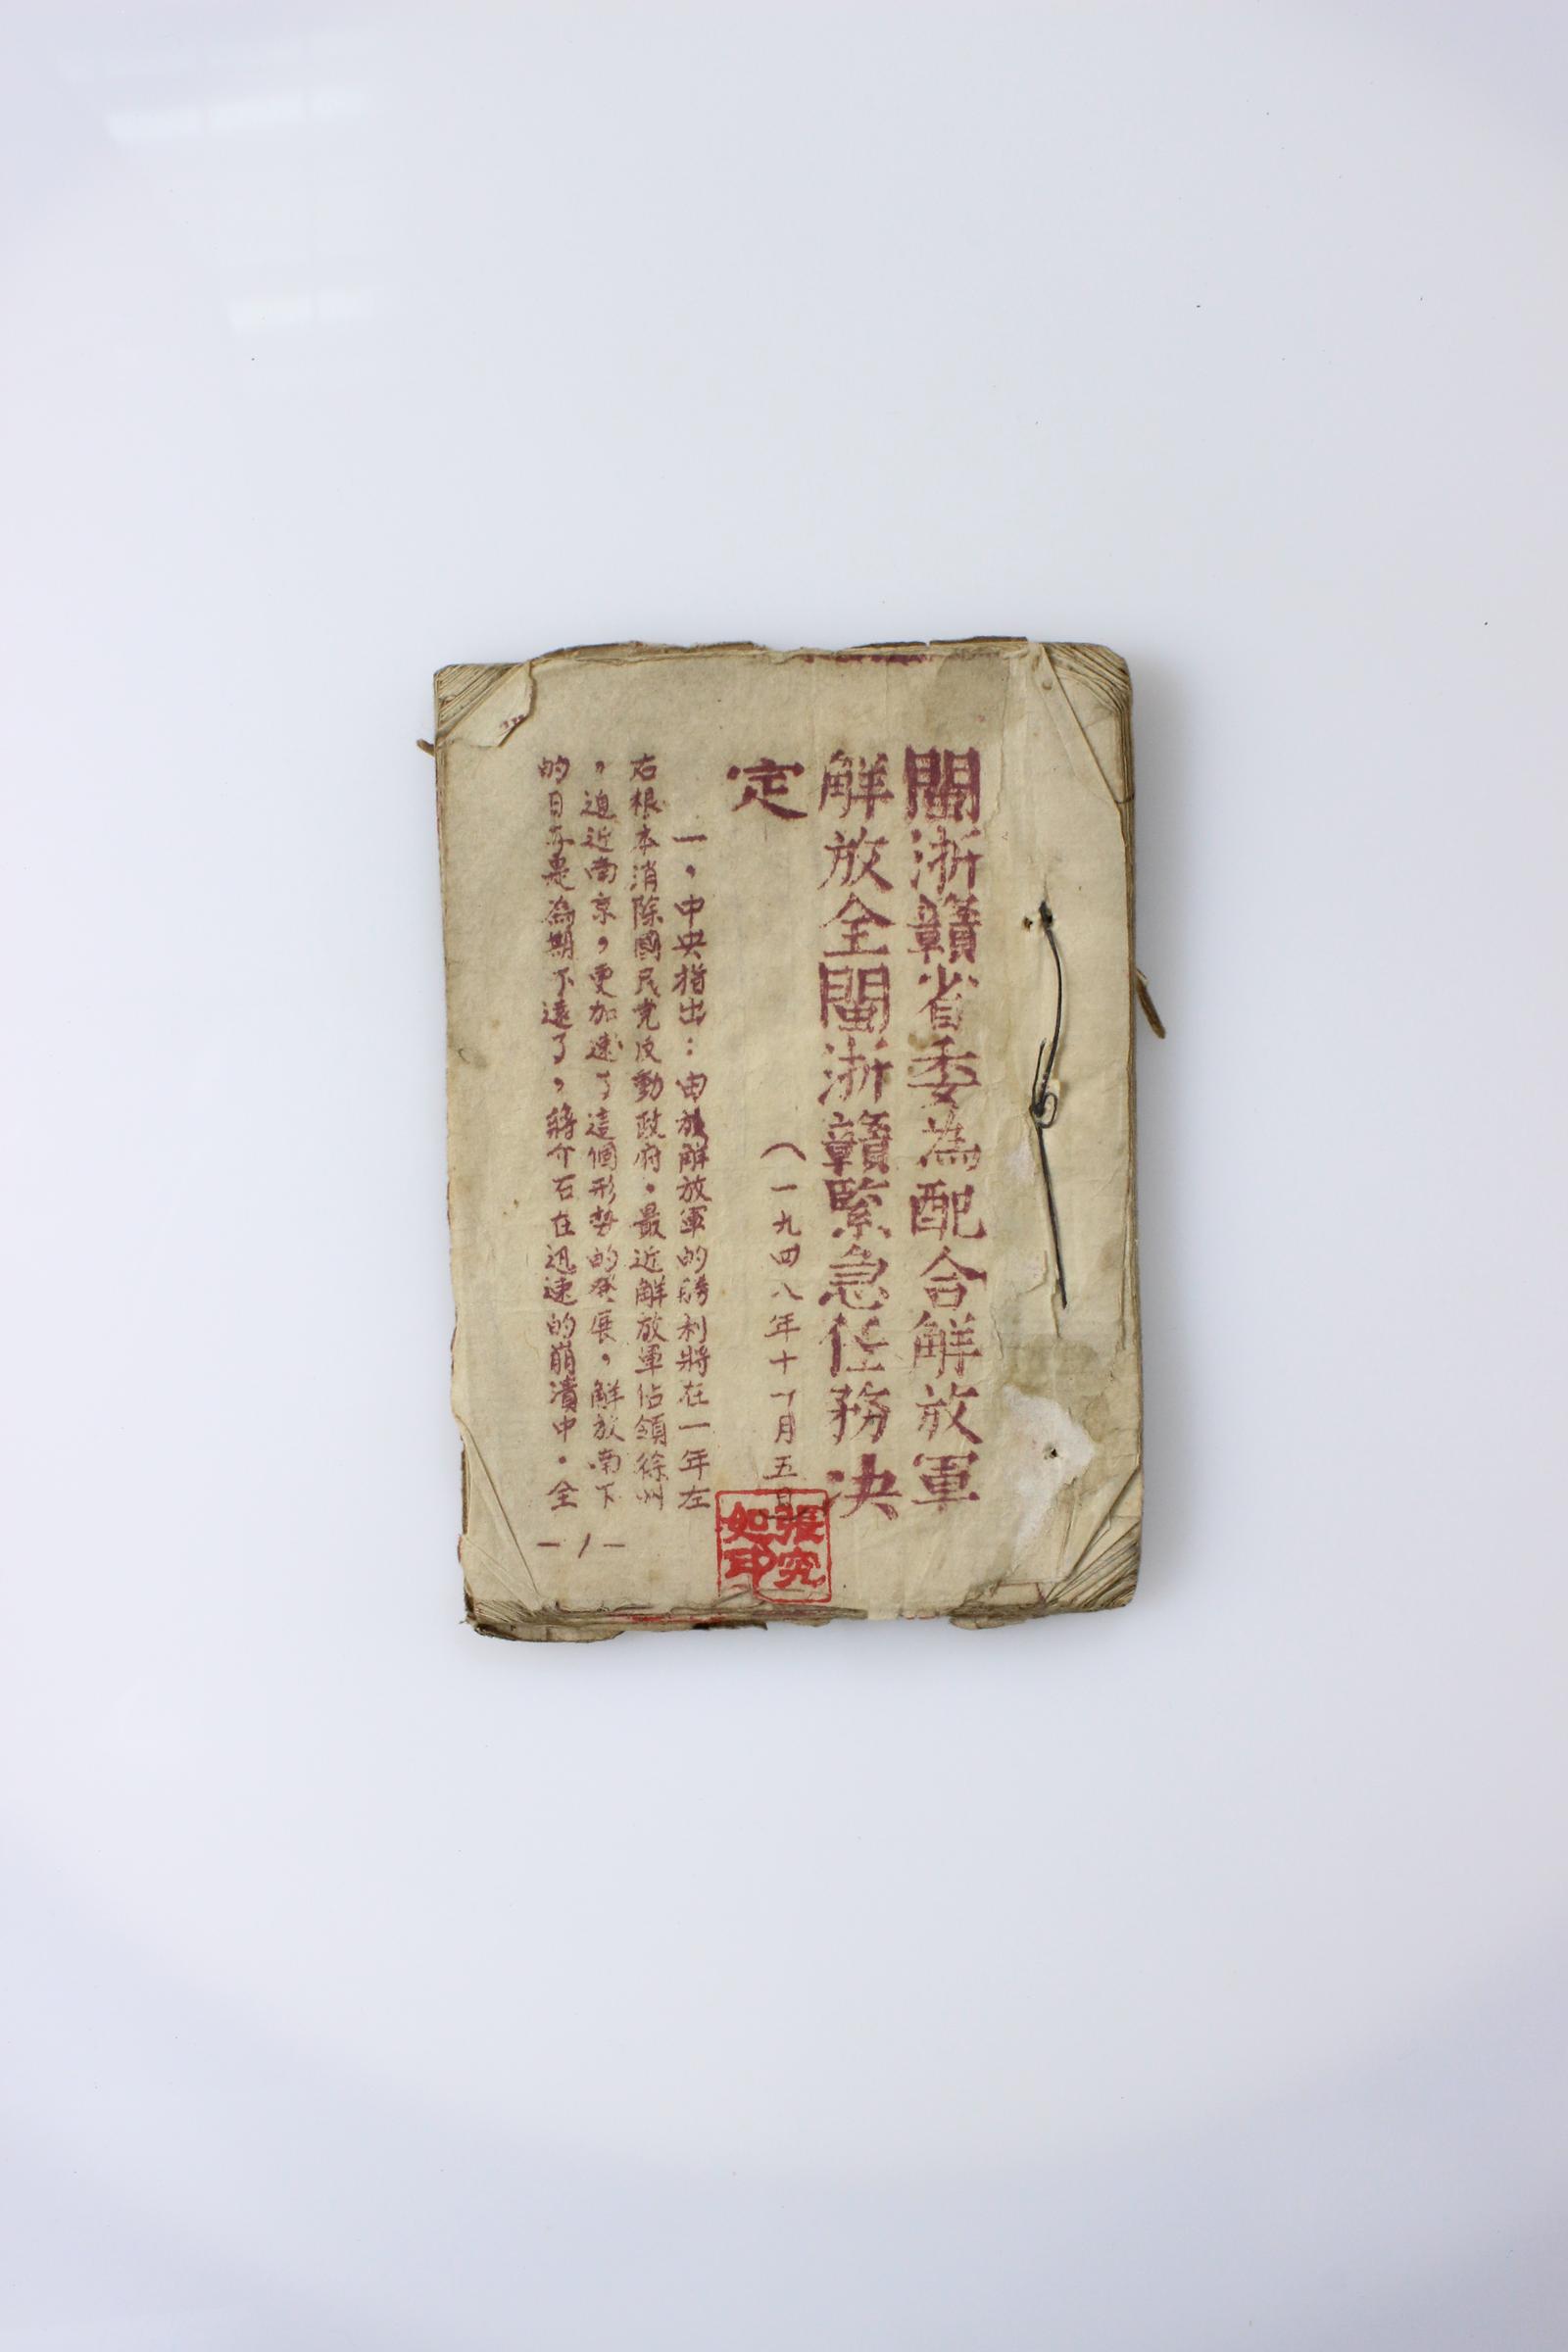 閩浙贛省委為配合解放軍
解放全閩浙贛緊急任務决
定
（一九四八年十一月五日
一，中央指出：由於解放軍的勝利將在一年左
右根本消除國民党反動政府。最近解放軍佔領徐州
，迫近南京，更加速了這個形势的発展，解放南下
的日子更為期不遠了，蔣介石在迅速的崩潰中。全
—1—
張究
如印